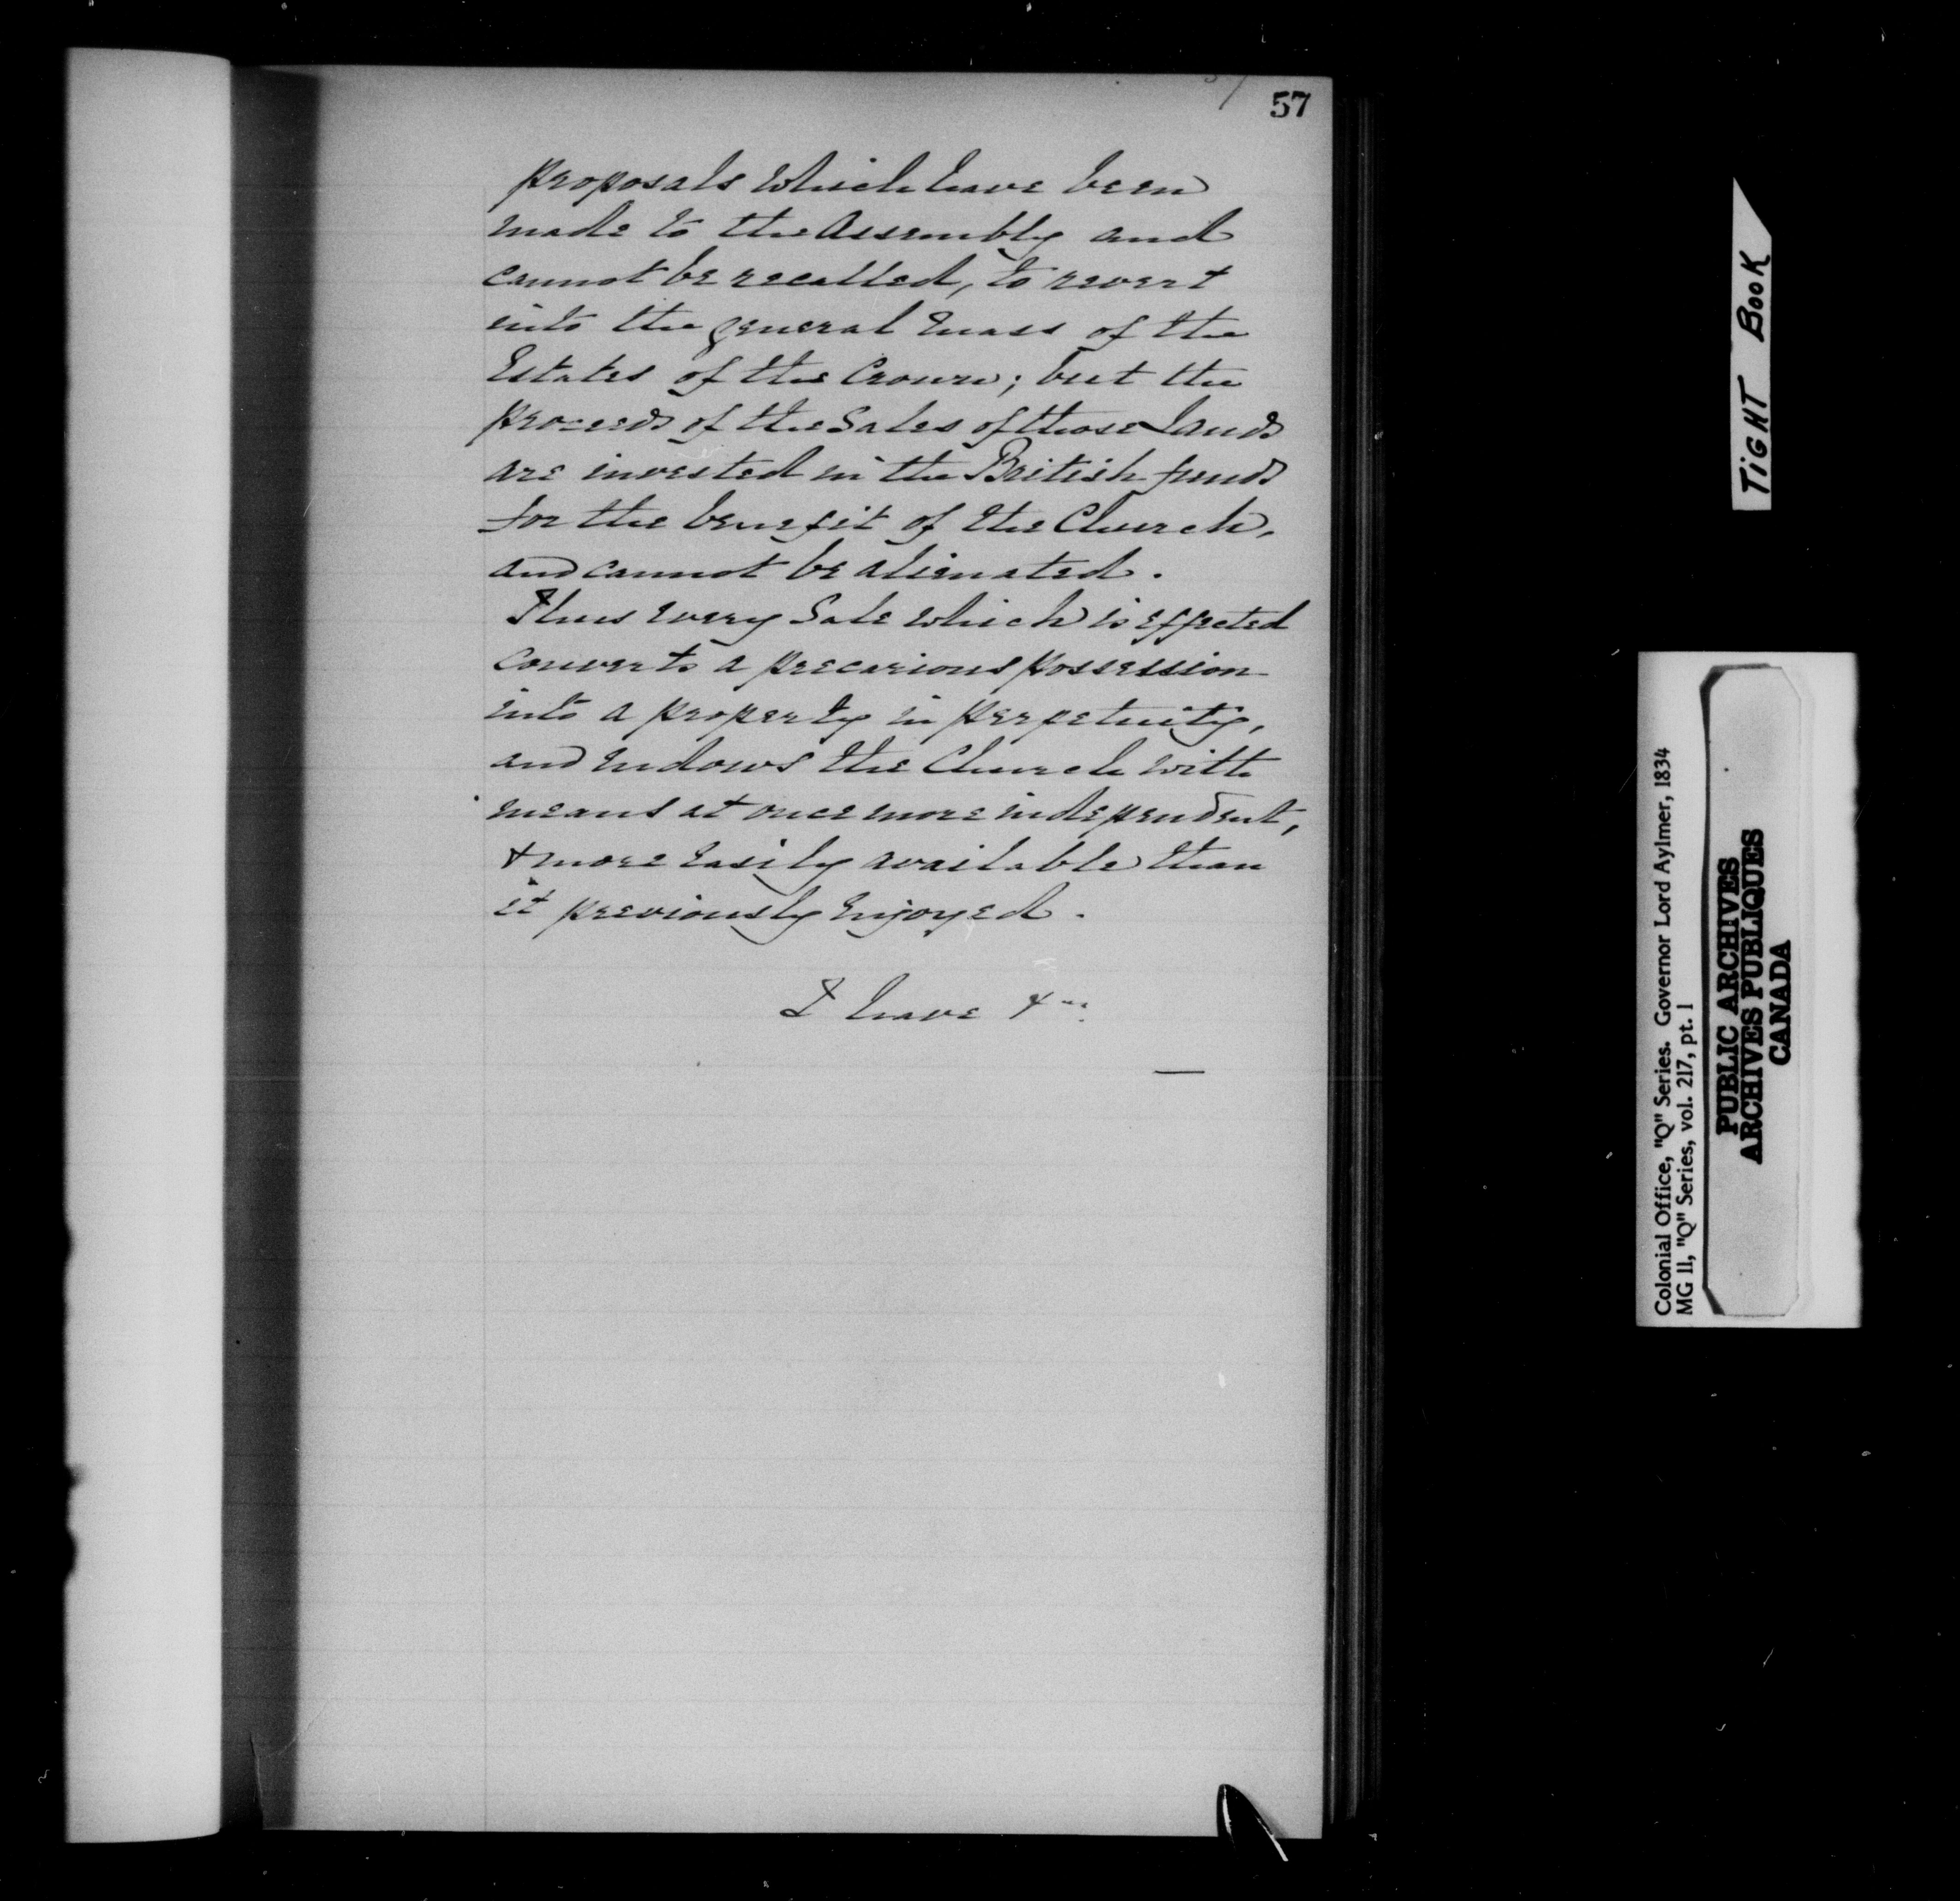 57
proposals which have been
made to the Assembly and
cannot be recalled, to revert
into the general mass of the
Estates of the Crown; but the
proceeds of the Sales of those Lands
are invested in the British funds
for the benefit of the Church,
and cannot be alienated.
Thus every Sale which is effected
converts a precarious possession
into a property in perpetuity,
and endows the Church with
means at once more independent,
& more easily available than
it previously enjoyed.
I have &ca.
TIGHT BOOK
Colonial Office, "Q" Series. Governor Lord Aylmer, 1834
MG 11, "Q" Series, vol. 217, pt. 1
PUBLIC ARCHIVES
ARCHIVES PUBLIQUES
CANADA